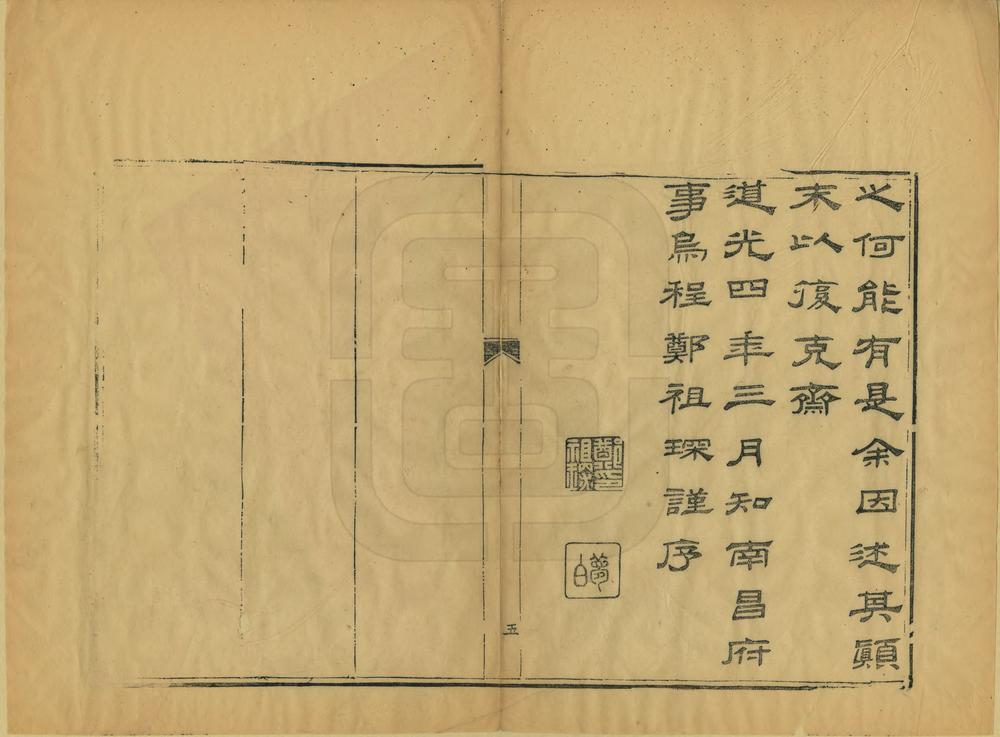 之何能有是余因述其顛
末以復克齋
道光四年三月知南昌府
事烏程鄭祖琛謹序
鄭印祖琛
夢白
五